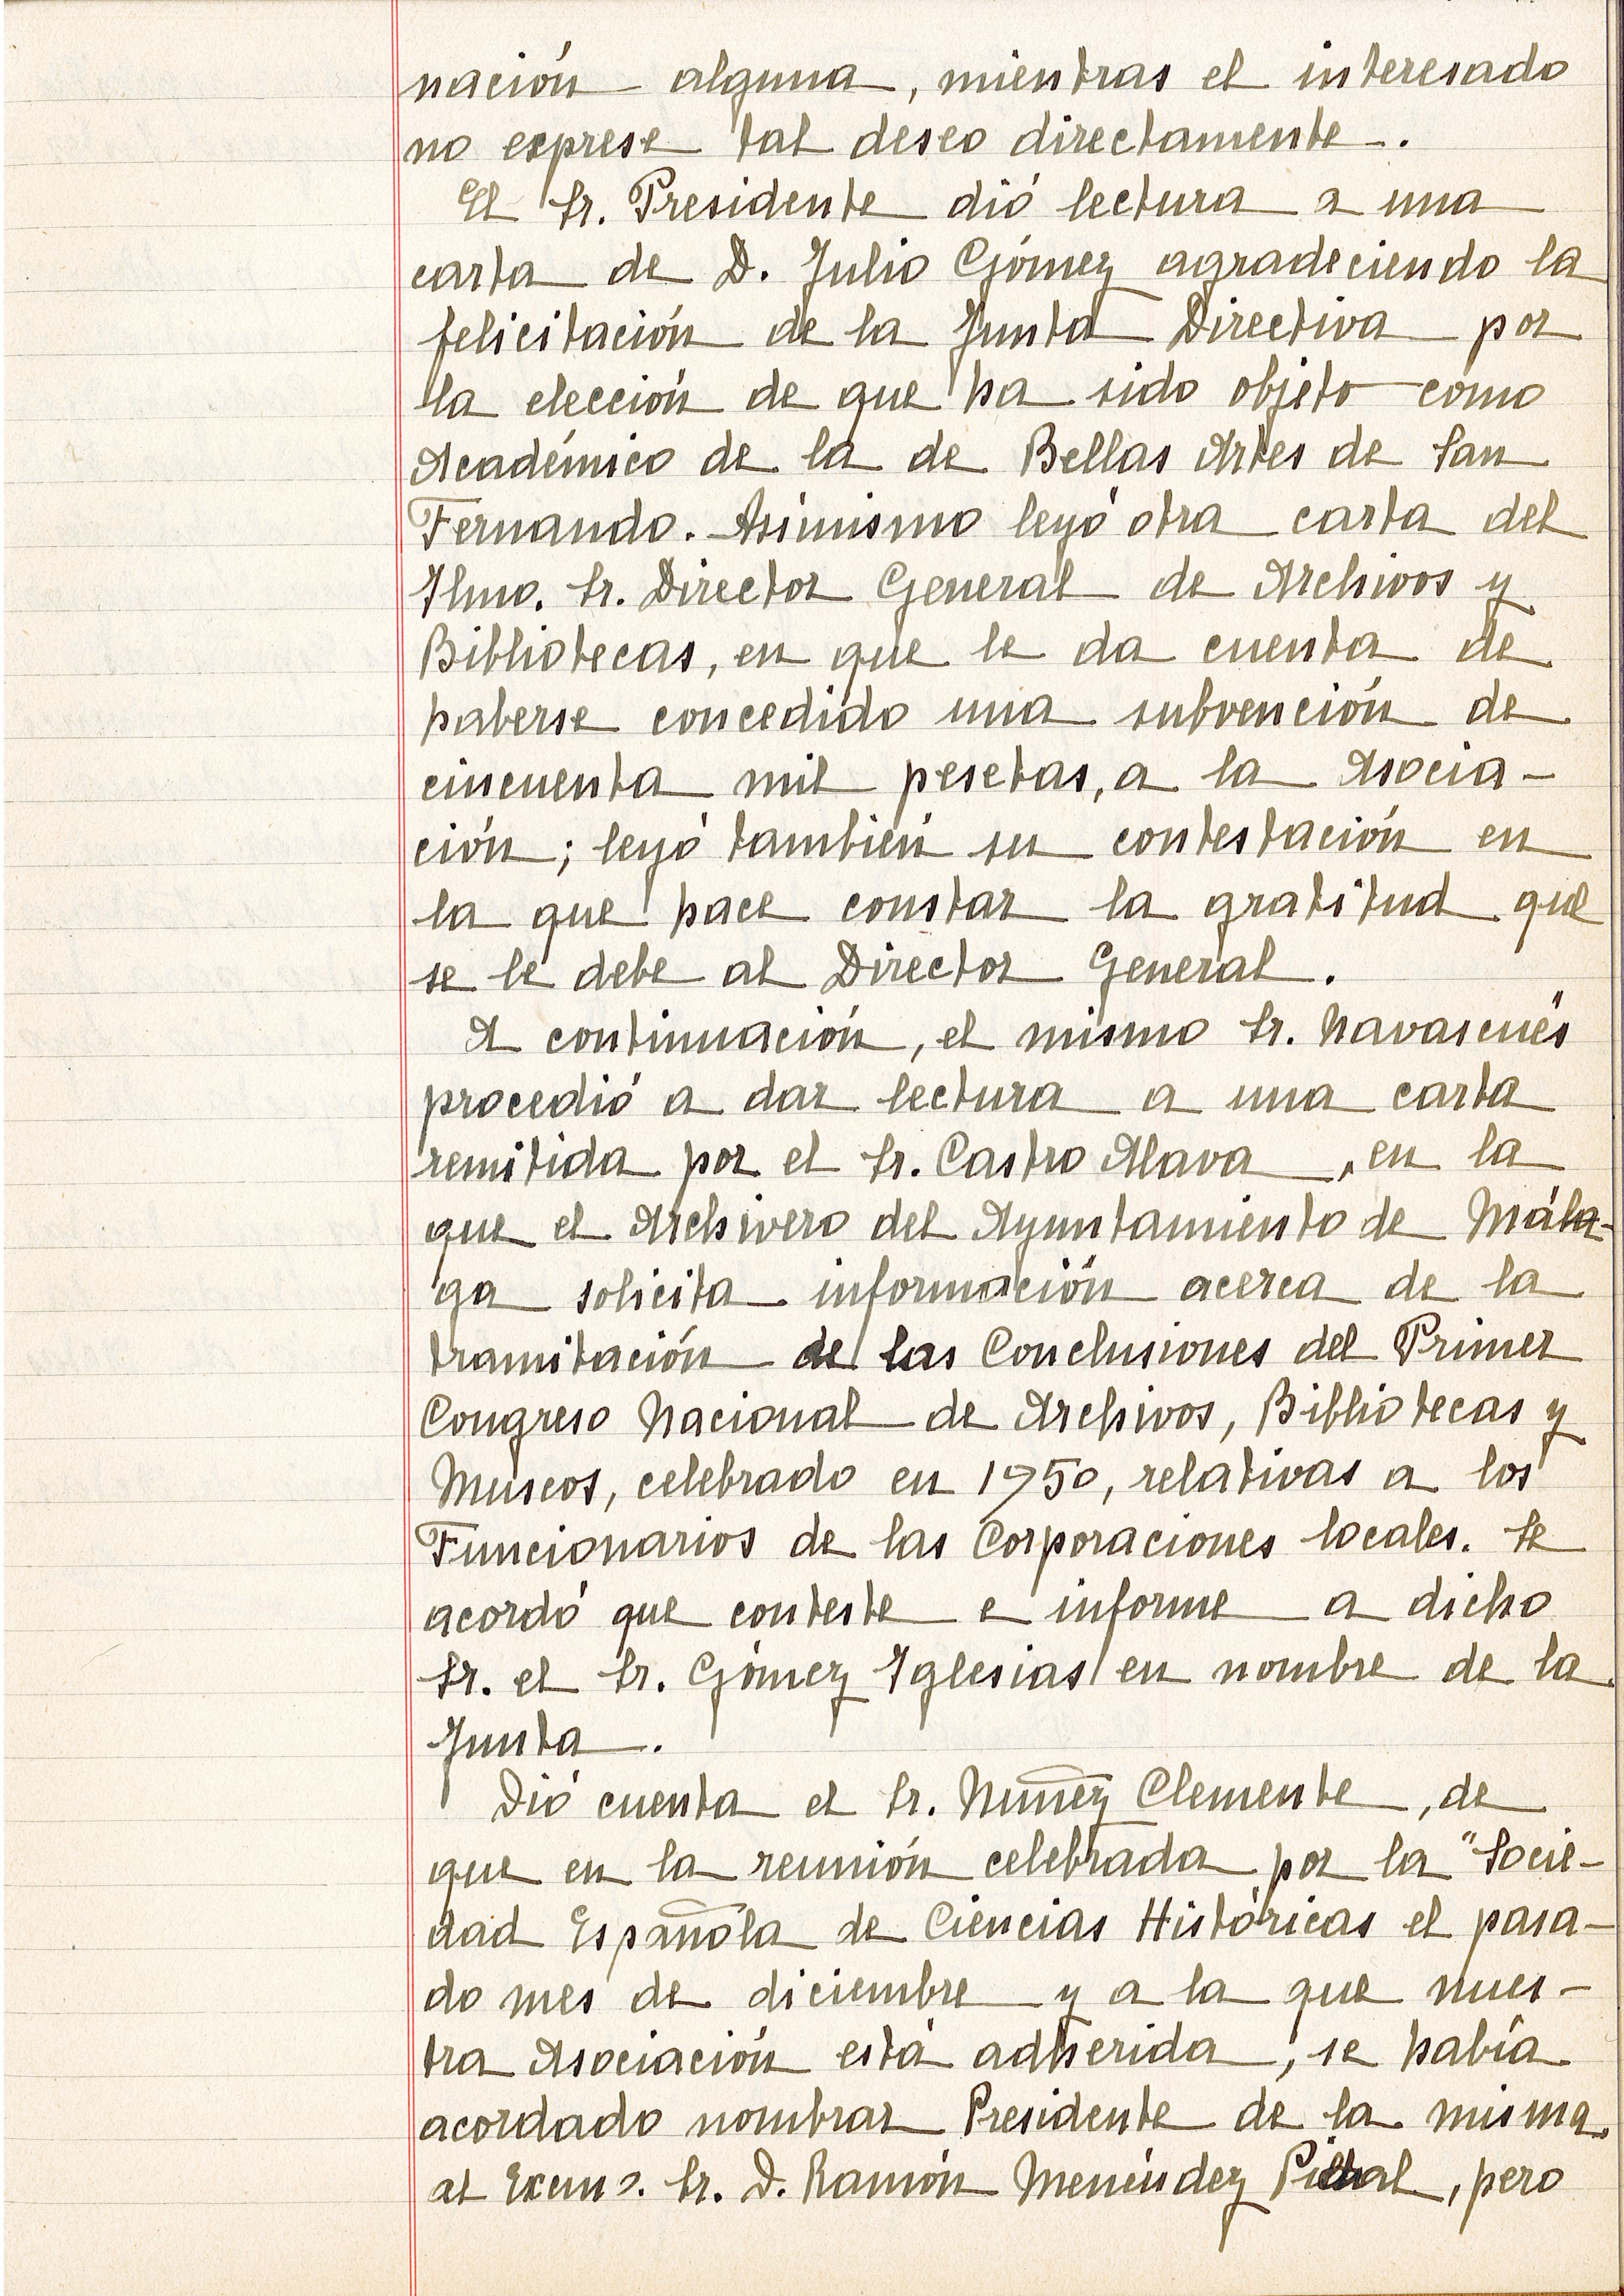 nación alguna, mientras el interesado
no exprese tal deseo directamente.
El Sr. Presidente dió lectura a una
carta de D. Julio Gómez agradeciendo la
felicitación de la Junta Directiva por
la elección de que ha sido objeto como
Académico de la de Bellas Artes de San
Fernando. Asimismo leyó otra carta del
Ilmo. Sr. Director General de Archivos y
Bibliotecas, en que le da cuenta de
haberse concedido una subvención de
cincuenta mil pesetas, a la Asocia-
ción; leyó también su contestación en
la que hace constar la gratitud que
se le debe al Director General.
A continuación, el mismo Sr. Navascués
procedió a dar lectura a una carta
remitida por el Sr. Castro Alava, en la
que el Archivero del Ayuntamiento de Mála-
ga solicita información acerca de la
tramitación de las Conclusiones del Primer
Congreso Nacional de Archivos, Bibliotecas y
Museos, celebrado en 1950, relativas a los
Funcionarios de las Corporaciones locales. Se
acordó que conteste e informe a dicho
Sr. el Sr. Gómez Iglesias en nombre de la
Junta.
Dió cuenta el Sr. Nuñez Clemente, de
que en la reunión celebrada por la "Socie-
dad Española de Ciencias Históricas el pasa-
do mes de diciembre y a la que nues-
tra Asociación está adherida, se había
acordado nombrar Presidente de la misma
al Excmo. Sr. D. Ramón Menéndez Pidal, pero